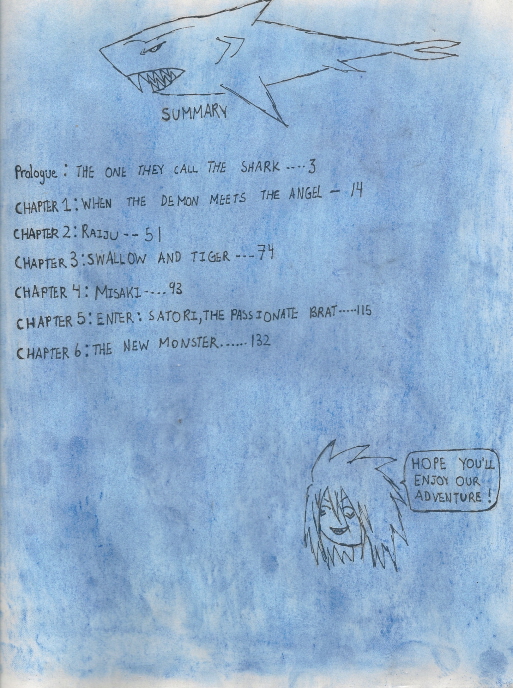 SUMMARY
Prologue: THE ONE THEY CALL THE SHARK ----3
CHAPTER 1: WHEN THE DEMON MEETS THE ANGEL — 14
CHAPTER 2: RAIJU -- 51
CHAPTER 3: SWALLOW AND TIGER ---74
CHAPTER 4: MISAKI----93
CHAPTER 5: ENTER: SATORI, THE PASSIONATE BRAT----115
CHAPTER 6: THE NEW MONSTER......132
HOPE YOU'LL
ENJOY OUR
ADVENTURE!